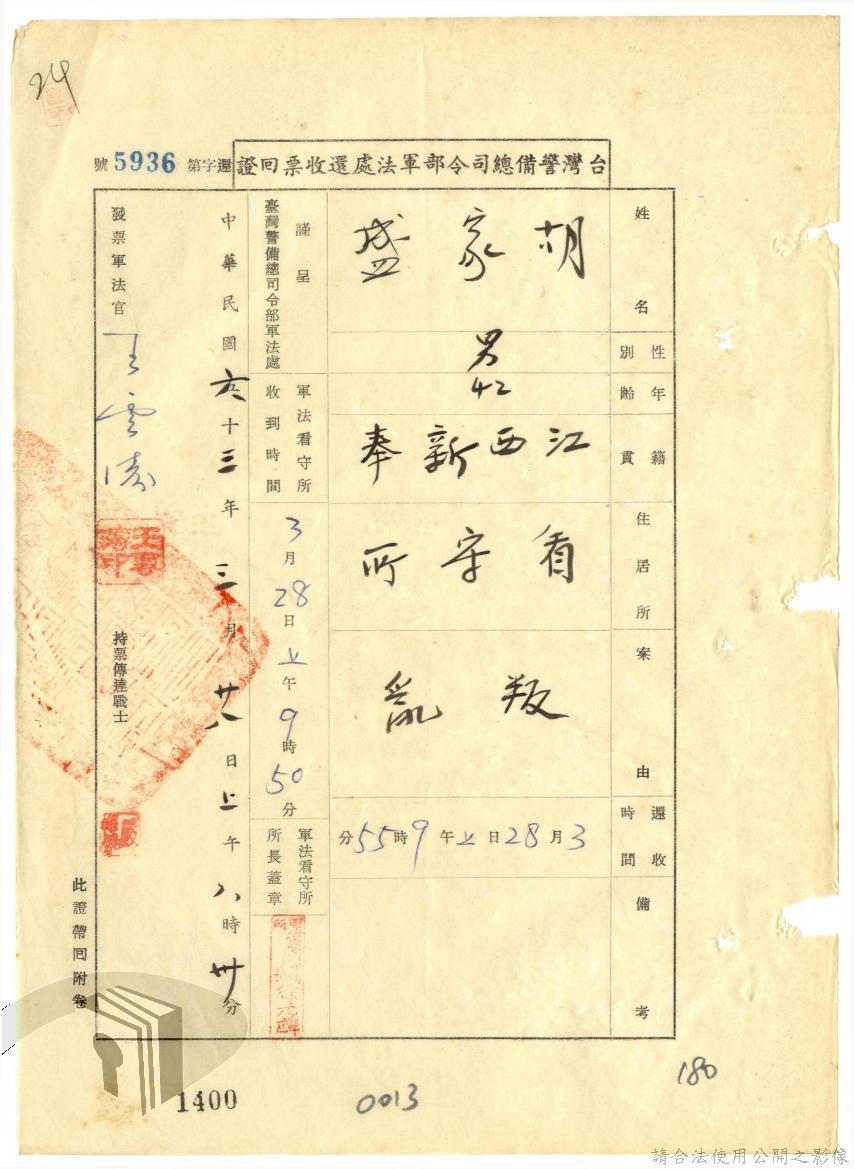 24
台灣警備總司令部軍法處還收票回證
還字第5936號
姓名
胡家盛
性別
男
年齡
42
籍貫
江西新奉
住居所
看守所
案由
叛亂
還收時間
3月28日上午9時55分
備考
謹呈
臺灣警備總司令部軍法處
軍法看守所收到時間
3月28日上午9時50分
軍法看守所所長蓋章
中華民國六十三年三月廿八日上午八時卅分
發票軍法官
王雲濤
持票傳達戰士
此證帶回附卷
1400
0013
180
請合法使用公開之影像